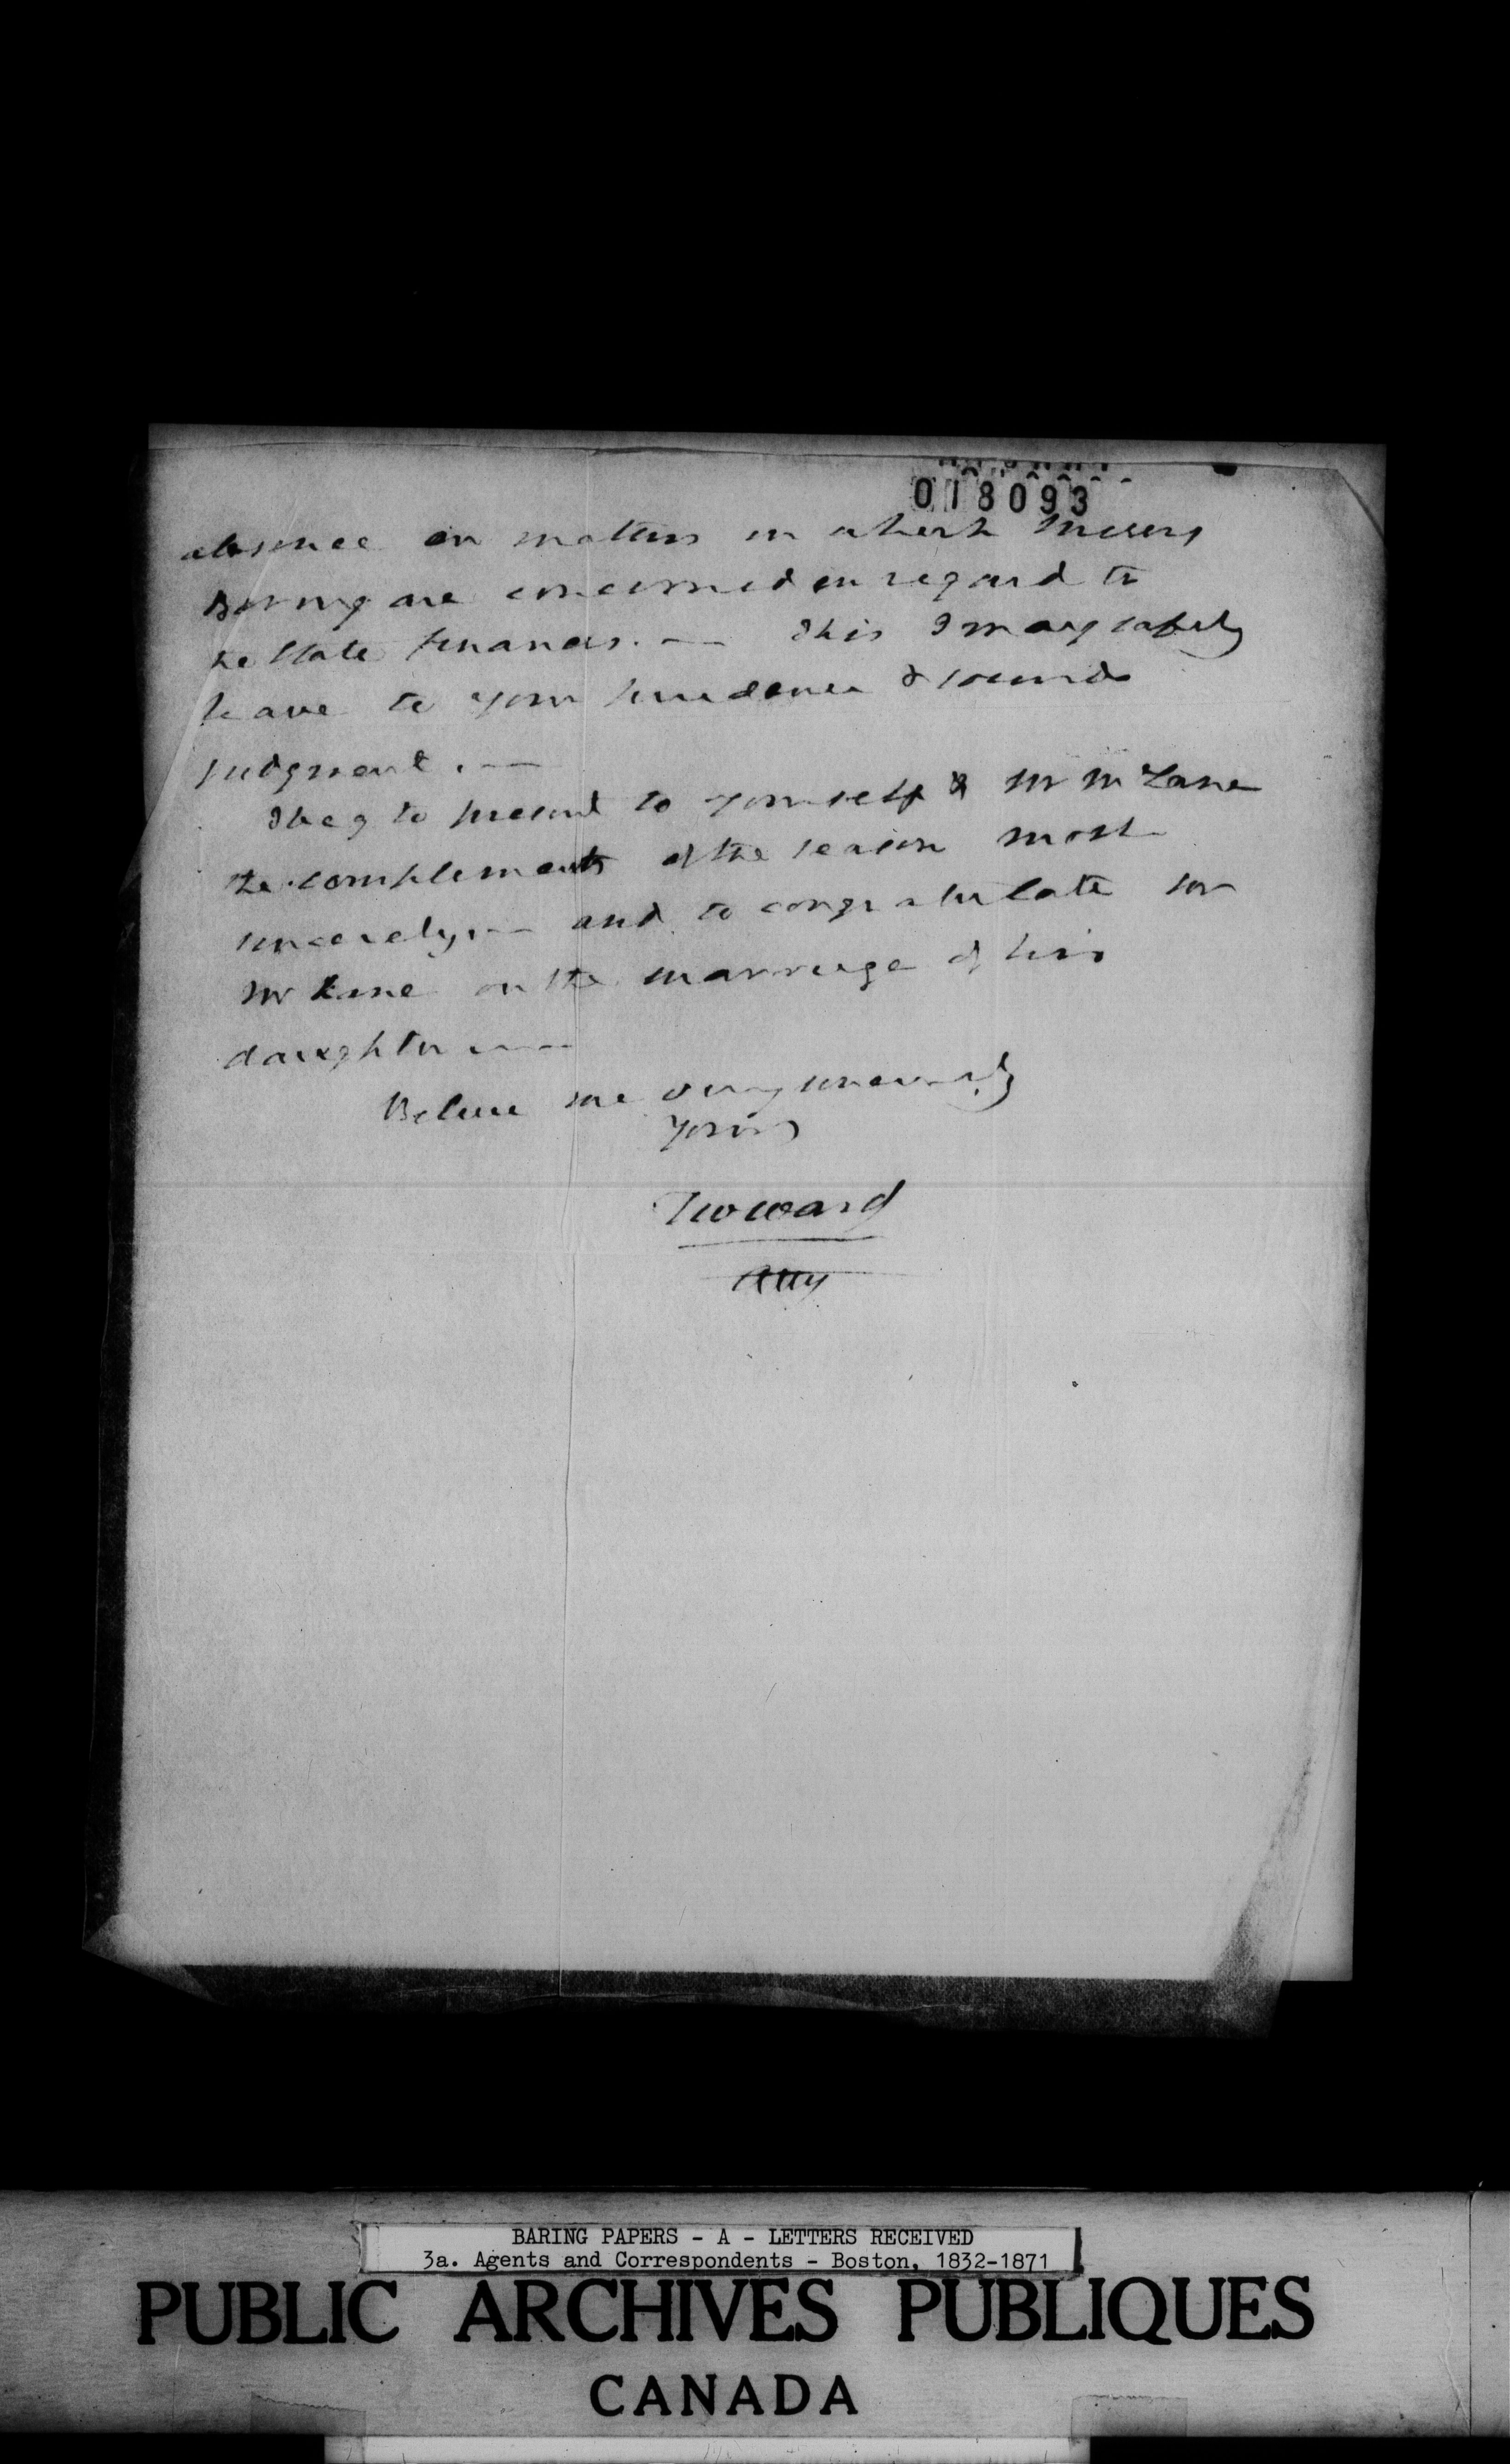 018093
absence on matters in which Messrs
Baring are concerned in regard to
the State finances. — This I may safely
leave to your prudence & sound
judgment. —
I beg to present to yourself & Mr McLane
the compliments of the season most
sincerely, — and to congratulate
Mr Lane on the marriage of his
daughter —
Believe me very sincerely
Yours
TWWard
Atty
BARING PAPERS - A - LETTERS RECEIVED
3a. Agents and Correspondents - Boston, 1832-1871
PUBLIC ARCHIVES PUBLIQUES
CANADA